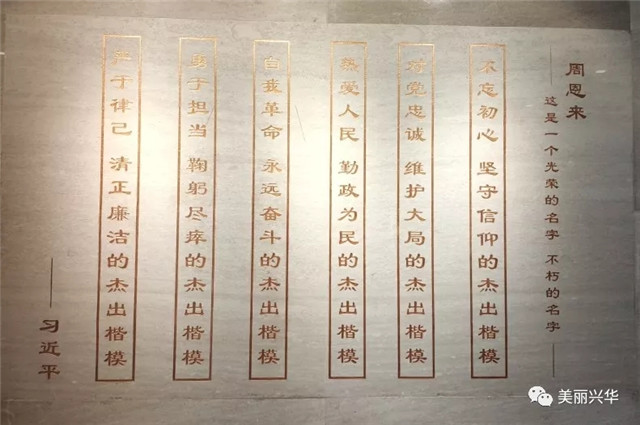 周恩来
——这是一个光荣的名字 不朽的名字——
不忘初心 坚守信仰的杰出楷模
对党忠诚 维护大局的杰出楷模
热爱人民 勤政为民的杰出楷模
自我革命 永远奋斗的杰出楷模
勇于担当 鞠躬尽瘁的杰出楷模
严于律己 清正廉洁的杰出楷模
——习近平
美丽兴华